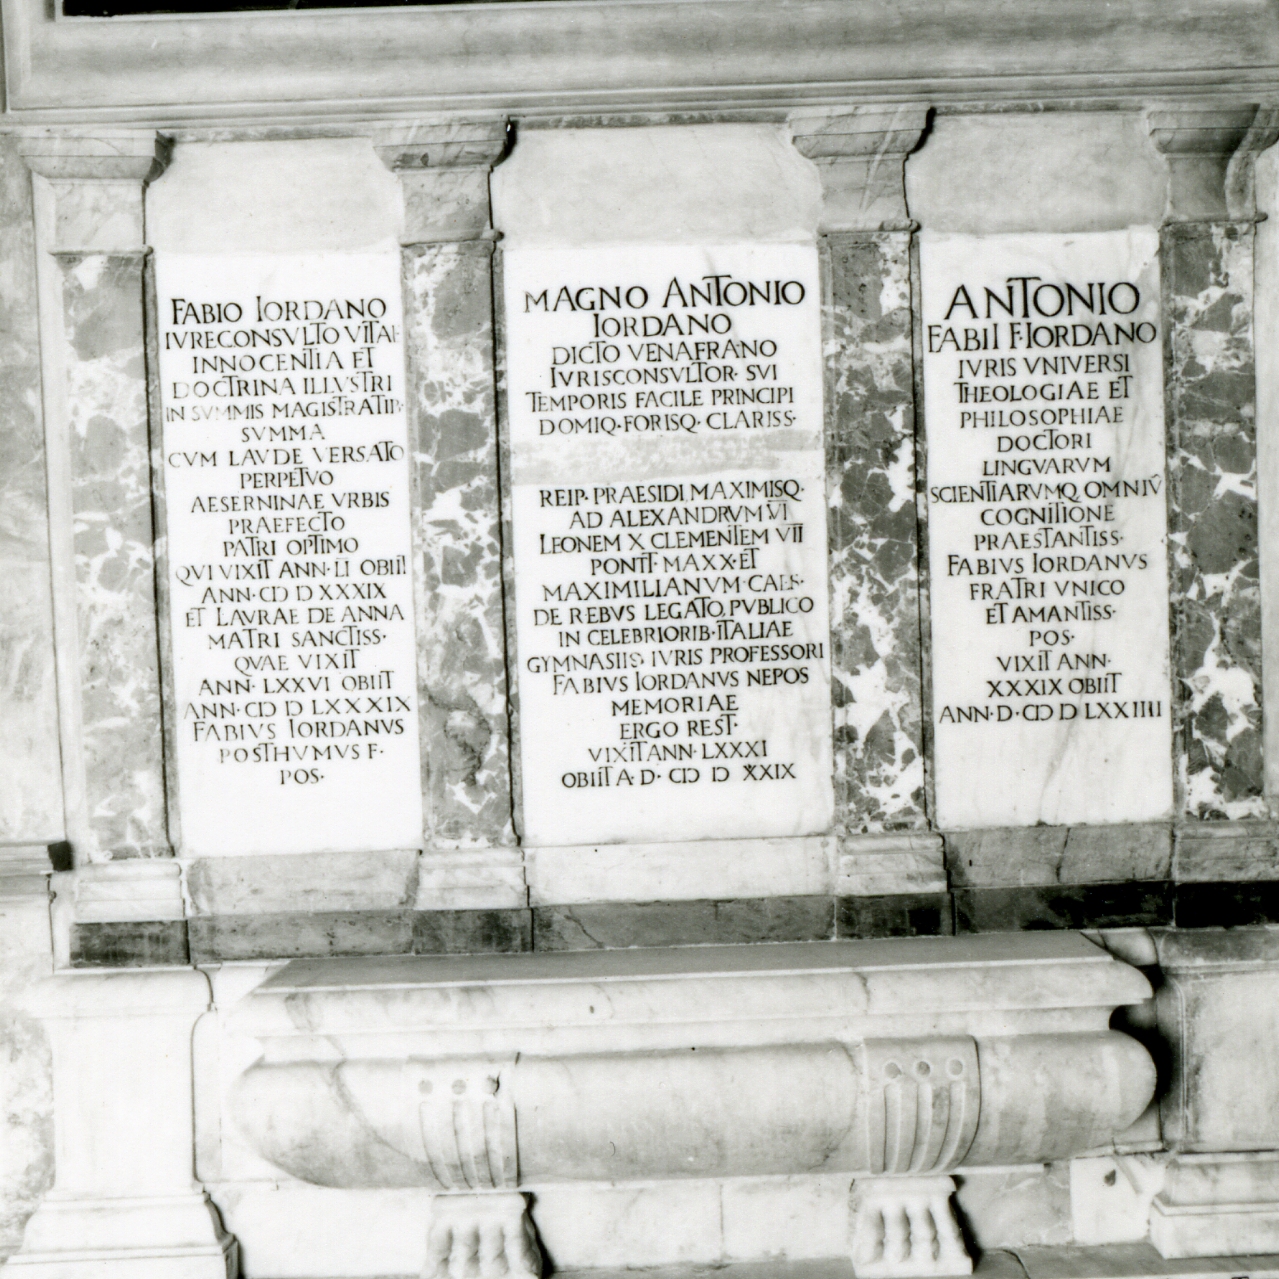 FABIO IORDANO
IVRECONSVLTO VITAE
INNOCENTIA ET
DOCTRINA ILLVSTRI
IN SVMMIS MAGISTRATIP·
SVMMA
CVM LAVDE VERSATO
PERPETVO
AESERNINAE VRBIS
PRAEFECTO
PATRI OPTIMO
QVI VIXIT ANN·LI OBIIT
ANN·CIƆ IƆ XXXIX
ET LAVRAE DE ANNA
MATRI SANCTISS·
QVAE VIXIT
ANN·LXXVI OBIIT
ANN·CIƆ IƆ LXXXIX
FABIVS IORDANVS
POSTHVMVS F·
POS·
MAGNO ANTONIO
IORDANO
DICTO VENAFRANO
IVRISCONSVLTOR·SVI
TEMPORIS FACILE PRINCIPI
DOMIQ·FORISQ·CLARISS·
REIP·PRAESIDI MAXIMISQ·
AD ALEXANDRVM VI
LEONEM X CLEMENTEM VII
PONTT·MAXX·ET
MAXIMILIANVM CAES·
DE REBVS LEGATO, PVBLICO
IN CELEBRIORIB·ITALIAE
GYMNASIIS IVRIS PROFESSORI
FABIVS IORDANVS NEPOS·
MEMORIAE
ERGO REST·
VIXIT ANN·LXXXI
OBIIT A·D· CIƆ IƆ XXIX
ANTONIO
FABII F·IORDANO
IVRIS VNIVERSI
THEOLOGIAE ET
PHILOSOPHIAE
DOCTORI
LINGVARVM
SCIENTIARVMQ·OMNIV̄
COGNITIONE
PRAESTANTISS·
FABIVS IORDANVS
FRATRI VNICO
ET AMANTISS·
POS·
VIXIT ANN·
XXXIX OBIIT
ANN·D·CIƆ IƆ LXXIIII